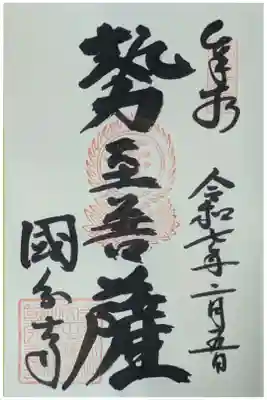 奉拝
令和七年二月五日
勢至菩薩
國分寺